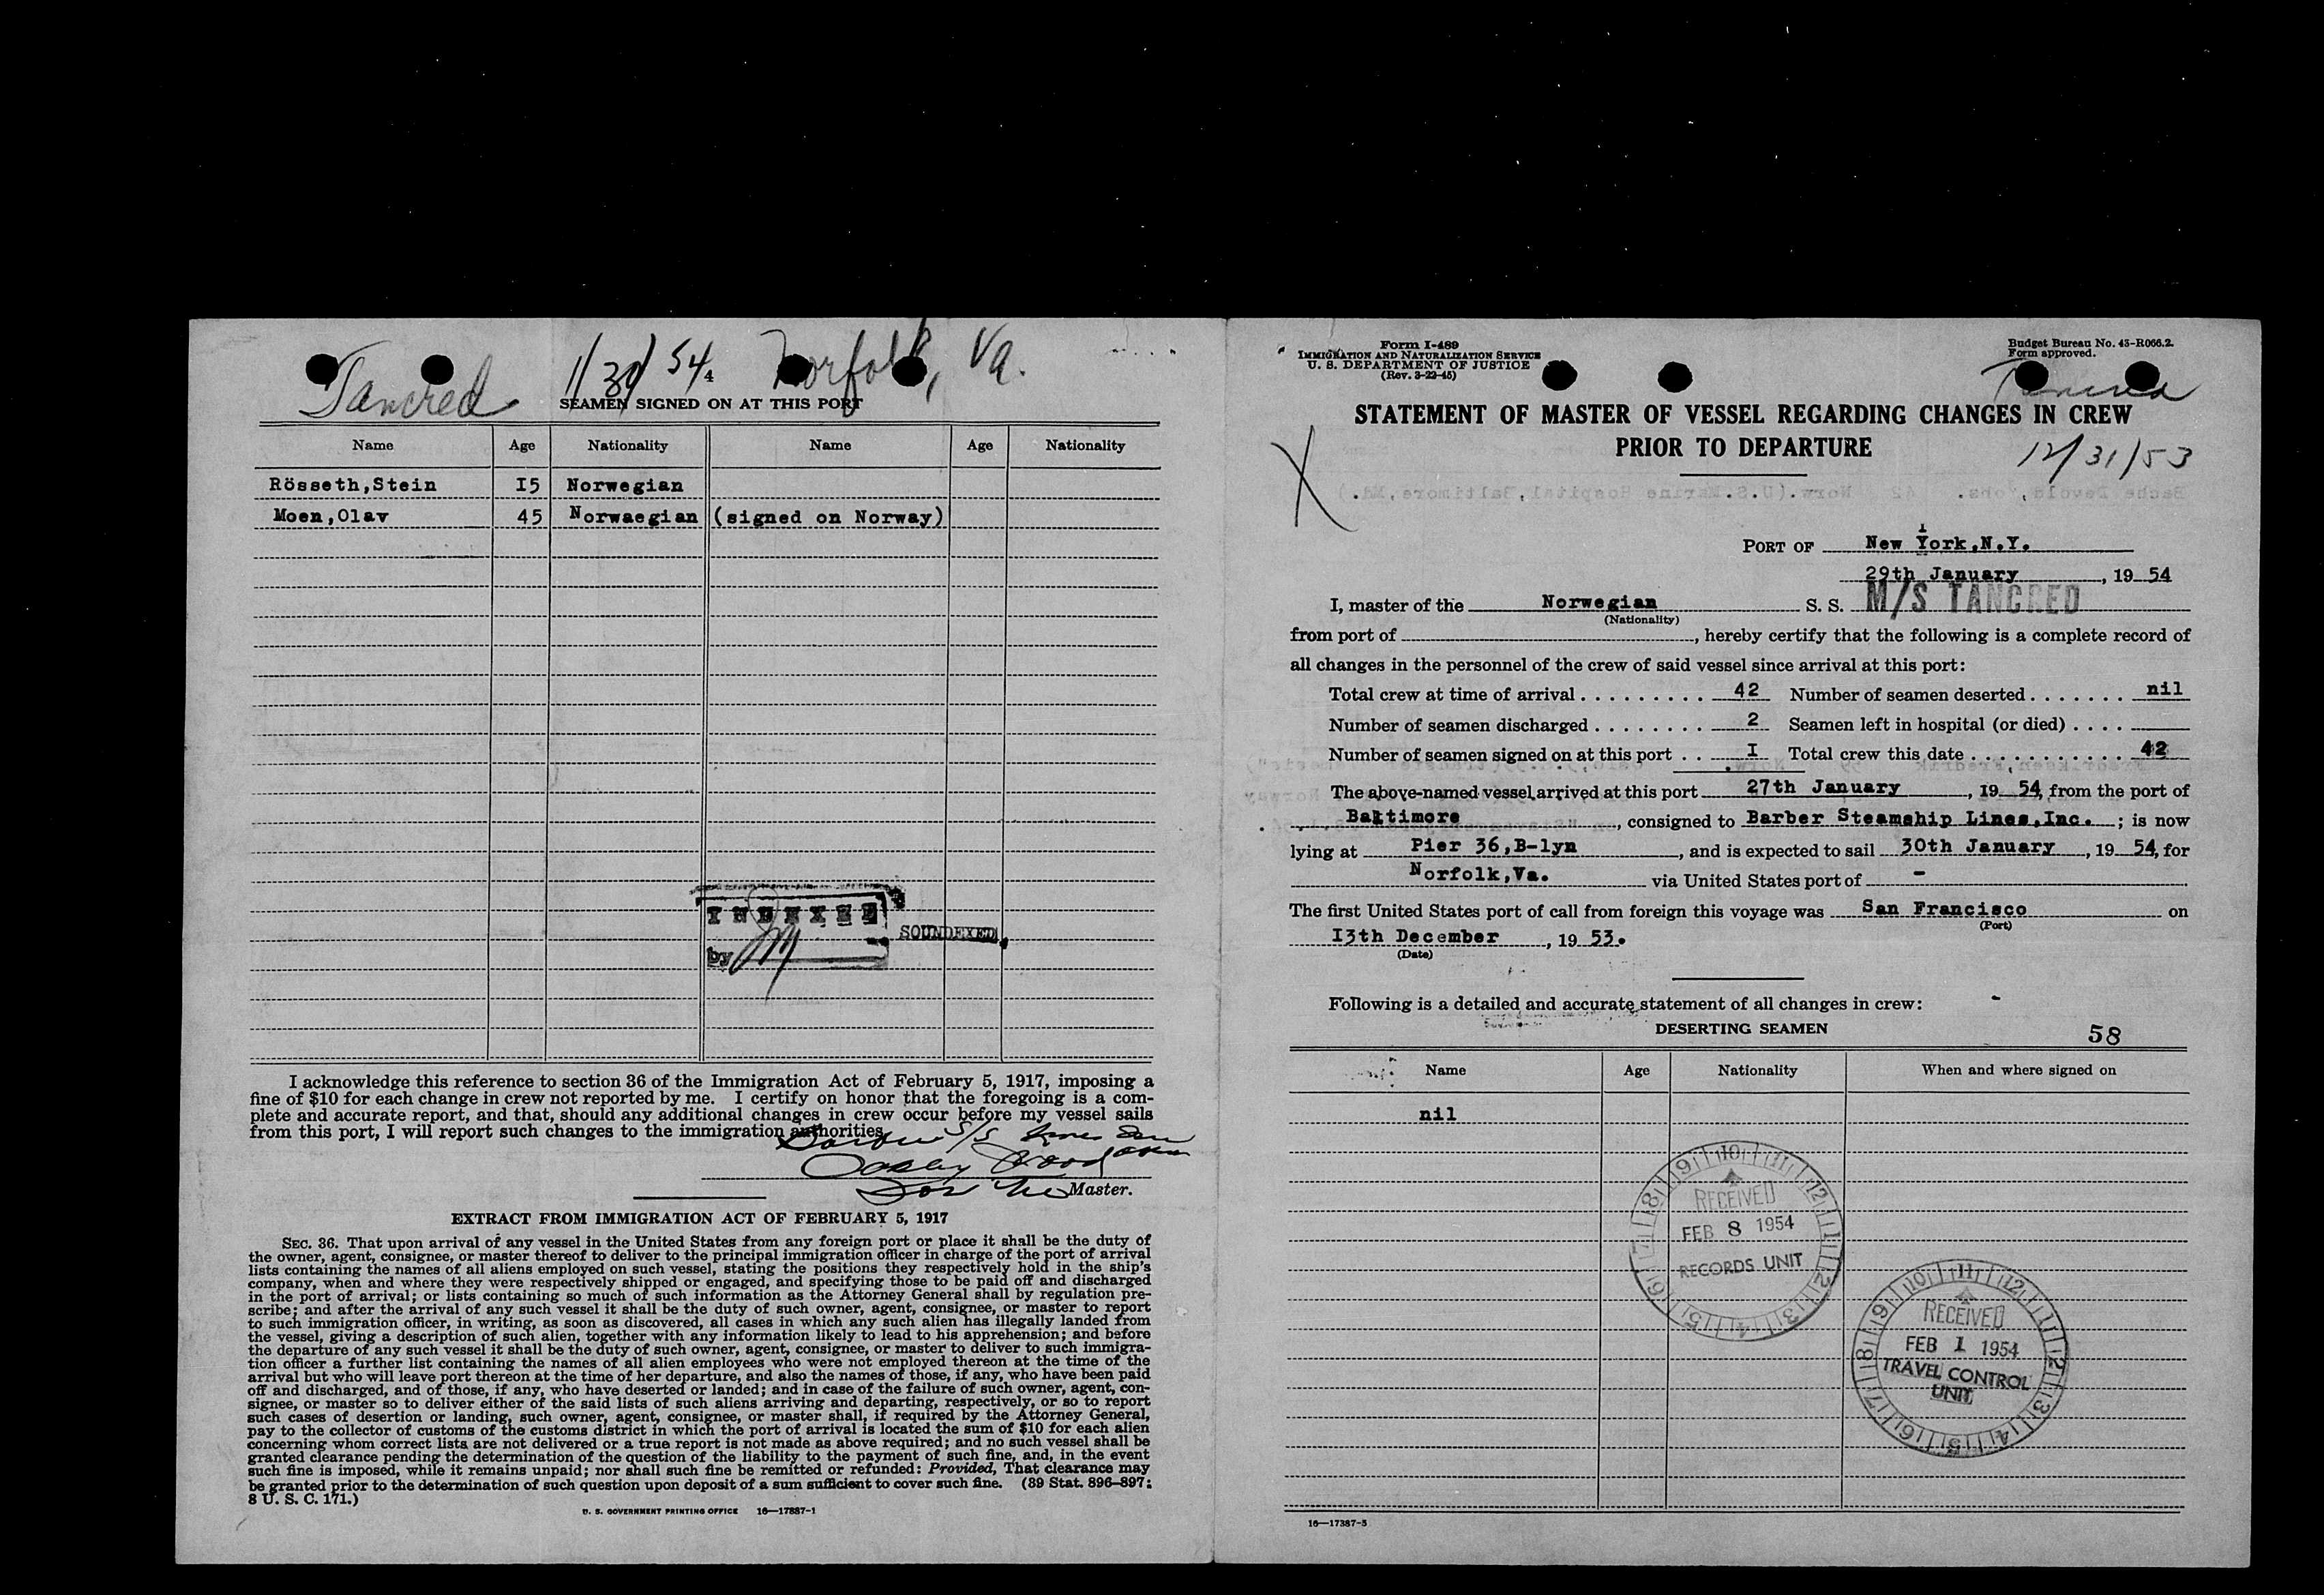 Tancred 1/30/54 Norfolk, Va.
4
SEAMEN SIGNED ON AT THIS PORT
Name Age Nationality Name Age Nationality
Rösseth,Stein I5 Norwegian
Moen,Olav 45 Norwaegian (signed on Norway)
INDEXED
by
SOUNDEXED
I acknowledge this reference to section 36 of the Immigration Act of February 5, 1917, imposing a
fine of $10 for each change in crew not reported by me. I certify on honor that the foregoing is a com-
plete and accurate report, and that, should any additional changes in crew occur before my vessel sails
from this port, I will report such changes to the immigration authorities.
Master.
EXTRACT FROM IMMIGRATION ACT OF FEBRUARY 5, 1917
SEC. 36. That upon arrival of any vessel in the United States from any foreign port or place it shall be the duty of
the owner, agent, consignee, or master thereof to deliver to the principal immigration officer in charge of the port of arrival
lists containing the names of all aliens employed on such vessel, stating the positions they respectively hold in the ship's
company, when and where they were respectively shipped or engaged, and specifying those to be paid off and discharged
in the port of arrival; or lists containing so much of such information as the Attorney General shall by regulation pre-
scribe; and after the arrival of any such vessel it shall be the duty of such owner, agent, consignee, or master to report
to such immigration officer, in writing, as soon as discovered, all cases in which any such alien has illegally landed from
the vessel, giving a description of such alien, together with any information likely to lead to his apprehension; and before
the departure of any such vessel it shall be the duty of such owner, agent, consignee, or master to deliver to such immigra-
tion officer a further list containing the names of all alien employees who were not employed thereon at the time of the
arrival but who will leave port thereon at the time of her departure, and also the names of those, if any, who have been paid
off and discharged, and of those, if any, who have deserted or landed; and in case of the failure of such owner, agent, con-
signee, or master so to deliver either of the said lists of such aliens arriving and departing, respectively, or so to report
such cases of desertion or landing, such owner, agent, consignee, or master shall, if required by the Attorney General,
pay to the collector of customs of the customs district in which the port of arrival is located the sum of $10 for each alien
concerning whom correct lists are not delivered or a true report is not made as above required; and no such vessel shall be
granted clearance pending the determination of the question of the liability to the payment of such fine, and, in the event
such fine is imposed, while it remains unpaid; nor shall such fine be remitted or refunded: Provided, That clearance may
be granted prior to the determination of such question upon deposit of a sum sufficient to cover such fine. (39 Stat. 896–897;
8 U. S. C. 171.)
U. S. GOVERNMENT PRINTING OFFICE 16—17387-1
Form I-489
IMMIGRATION AND NATURALIZATION SERVICE
U. S. DEPARTMENT OF JUSTICE
(Rev. 3-22-45)
Budget Bureau No. 43-R066.2.
Form approved.
Tancred
STATEMENT OF MASTER OF VESSEL REGARDING CHANGES IN CREW
PRIOR TO DEPARTURE
12/31/53
X
1
PORT OF New York,N.Y.
29th January, 19 54
I, master of the Norwegian S. S. M/S TANCRED
(Nationality)
from port of , hereby certify that the following is a complete record of
all changes in the personnel of the crew of said vessel since arrival at this port:
Total crew at time of arrival . . . . . . . . . 42 Number of seamen deserted . . . . . . . nil
Number of seamen discharged . . . . . . . . 2 Seamen left in hospital (or died) . . . .
Number of seamen signed on at this port . . I Total crew this date . . . . . . . . . . . 42
The above-named vessel arrived at this port 27th January, 19 54, from the port of
Baltimore, consigned to Barber Steamship Lines,Inc. ; is now
lying at Pier 36,B-lyn, and is expected to sail 30th January, 19 54, for
Norfolk,Va. via United States port of -
The first United States port of call from foreign this voyage was San Francisco on
(Port)
I3th December, 19 53.
(Date)
Following is a detailed and accurate statement of all changes in crew:
DESERTING SEAMEN
58
Name Age Nationality When and where signed on
nil
RECEIVED
FEB 8 1954
RECORDS UNIT
RECEIVED
FEB 1 1954
TRAVEL CONTROL
UNIT
16—17387-3